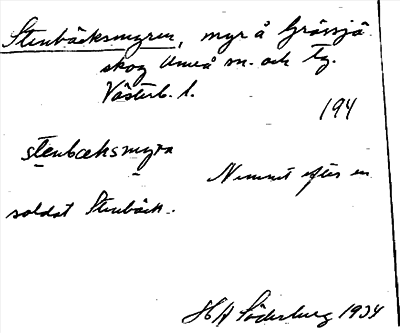 Stenbäcksmyren, myr å Grössjö
skog Umeå sn. och tg.
Västerb. l.
194
stenbæksmyra
Nemnt efter en
soldat Stenbäck.
H A Söderberg 1934